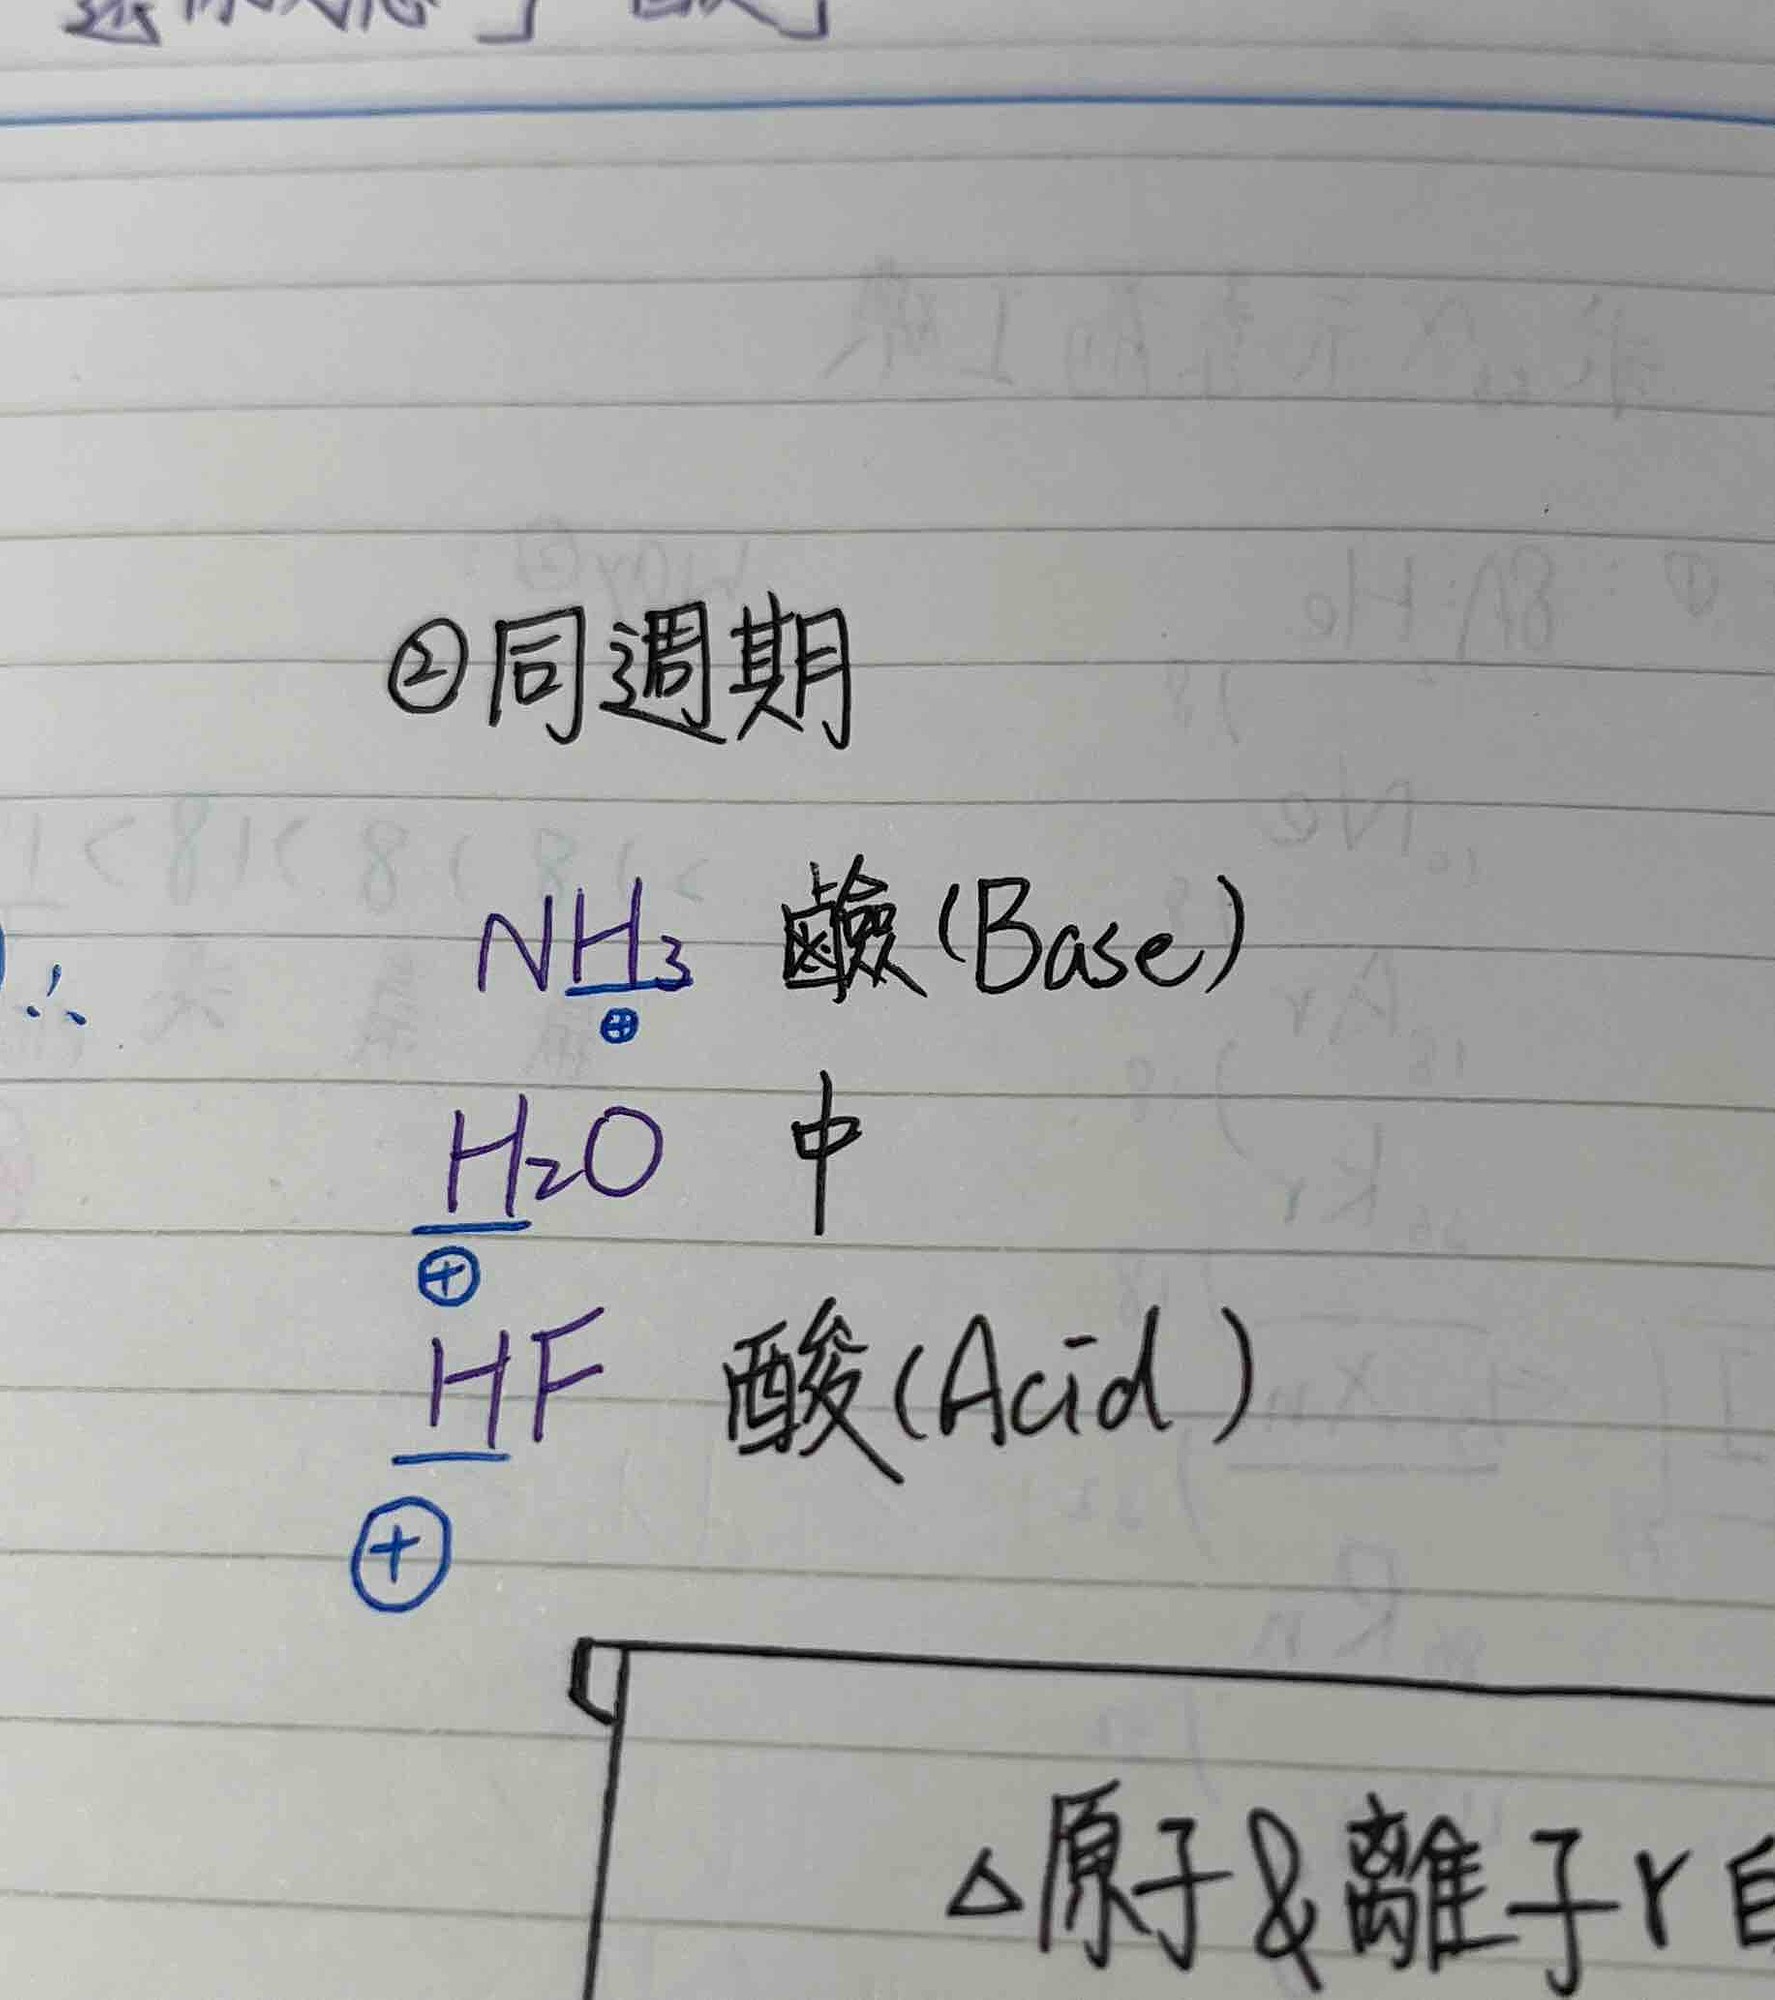 ②同週期
∴ NH₃ 鹼(Base)
⊕
H₂O 中
⊕
HF 酸(Acid)
⊕
△原子&離子r